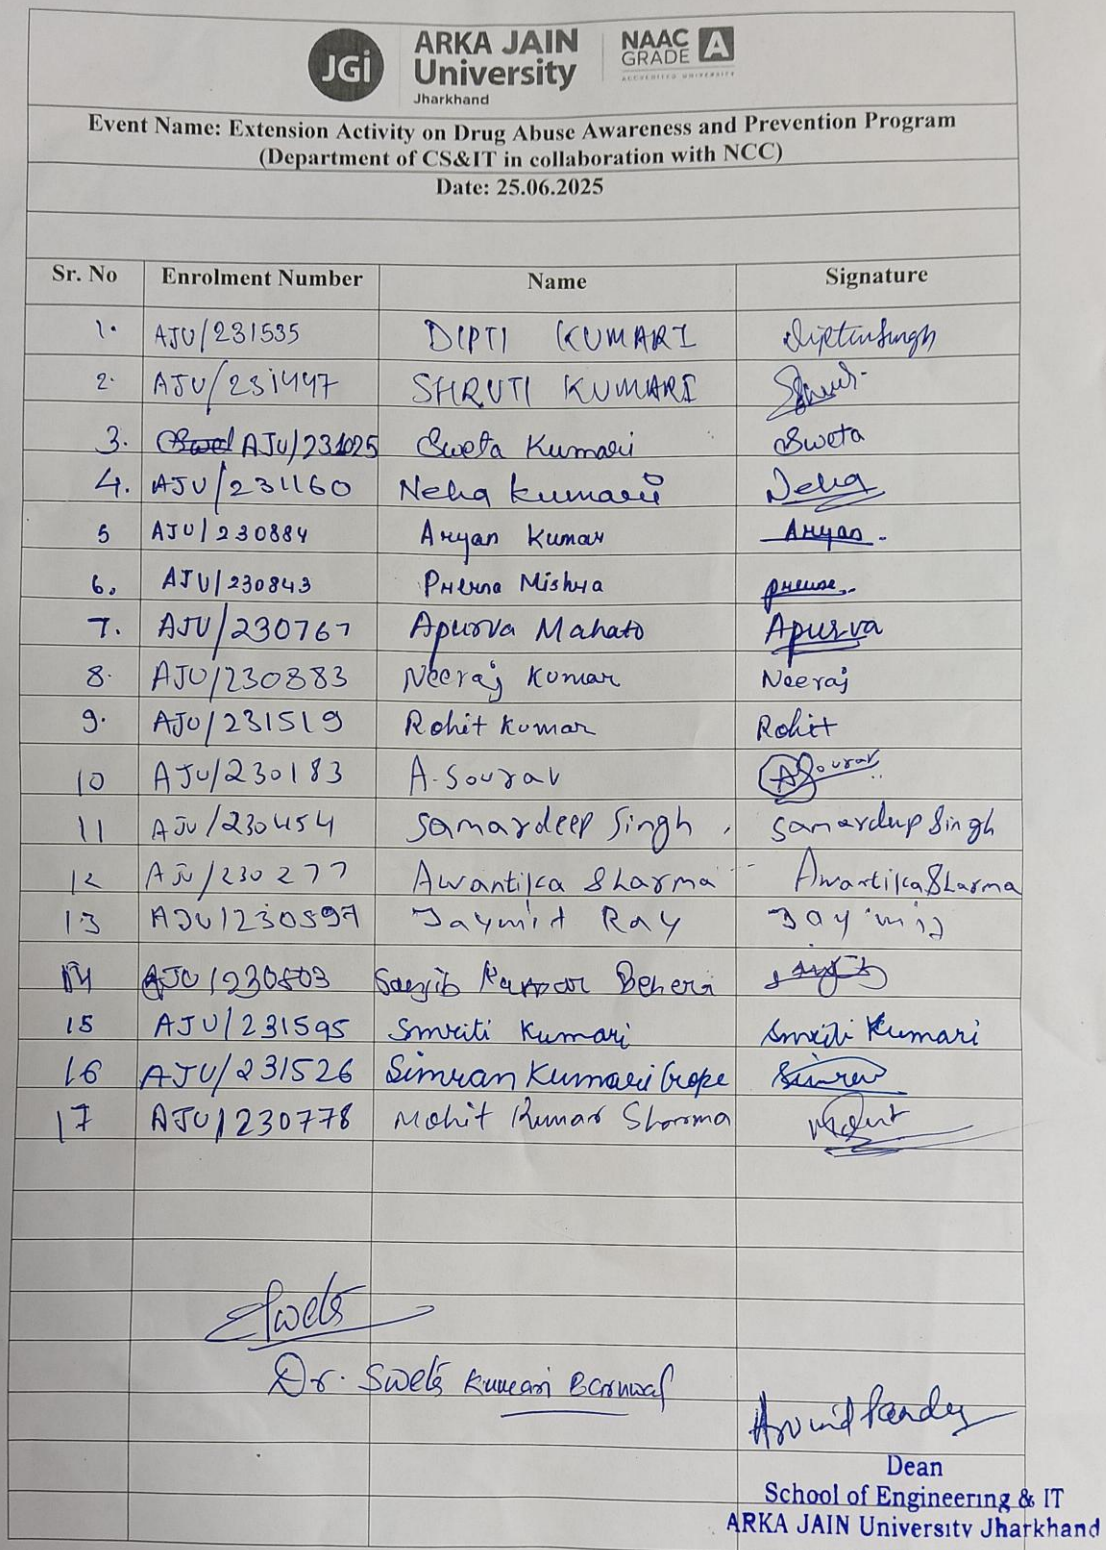 JGi ARKA JAIN University Jharkhand NAAC GRADE A
ACCREDITED UNIVERSITY
Event Name: Extension Activity on Drug Abuse Awareness and Prevention Program
(Department of CS&IT in collaboration with NCC)
Date: 25.06.2025
Sr. No Enrolment Number Name Signature
1. AJU/231535 DIPTI KUMARI
2. AJU/231447 SHRUTI KUMARI
3. AJU/231025 Sweta Kumari Sweta
4. AJU/231160 Neha Kumari Neha
5 AJU/230884 Aryan Kumar Aryan
6. AJU/230843 Prerna Mishra
7. AJU/230767 Apurva Mahato Apurva
8. AJU/230883 Neeraj Kumar Neeraj
9. AJU/231519 Rohit Kumar Rohit
10 AJU/230183 A.Sourav ASourav
11 AJU/230454 Samardeep Singh Samardeep Singh
12 AJU/230277 Awantika Sharma Awantika Sharma
13 AJU/230597 Jaymit Ray Jaymit
14 Behera
15 AJU/231595 Smriti Kumari Smriti Kumari
16 AJU/231526 Simran Kumari Gope Simran
17 AJU/230778 Mohit Kumar Sharma Mohit
Sweta
Dr. Sweta Kumari Barnwal
Arvind Pandey
Dean
School of Engineering & IT
ARKA JAIN University Jharkhand